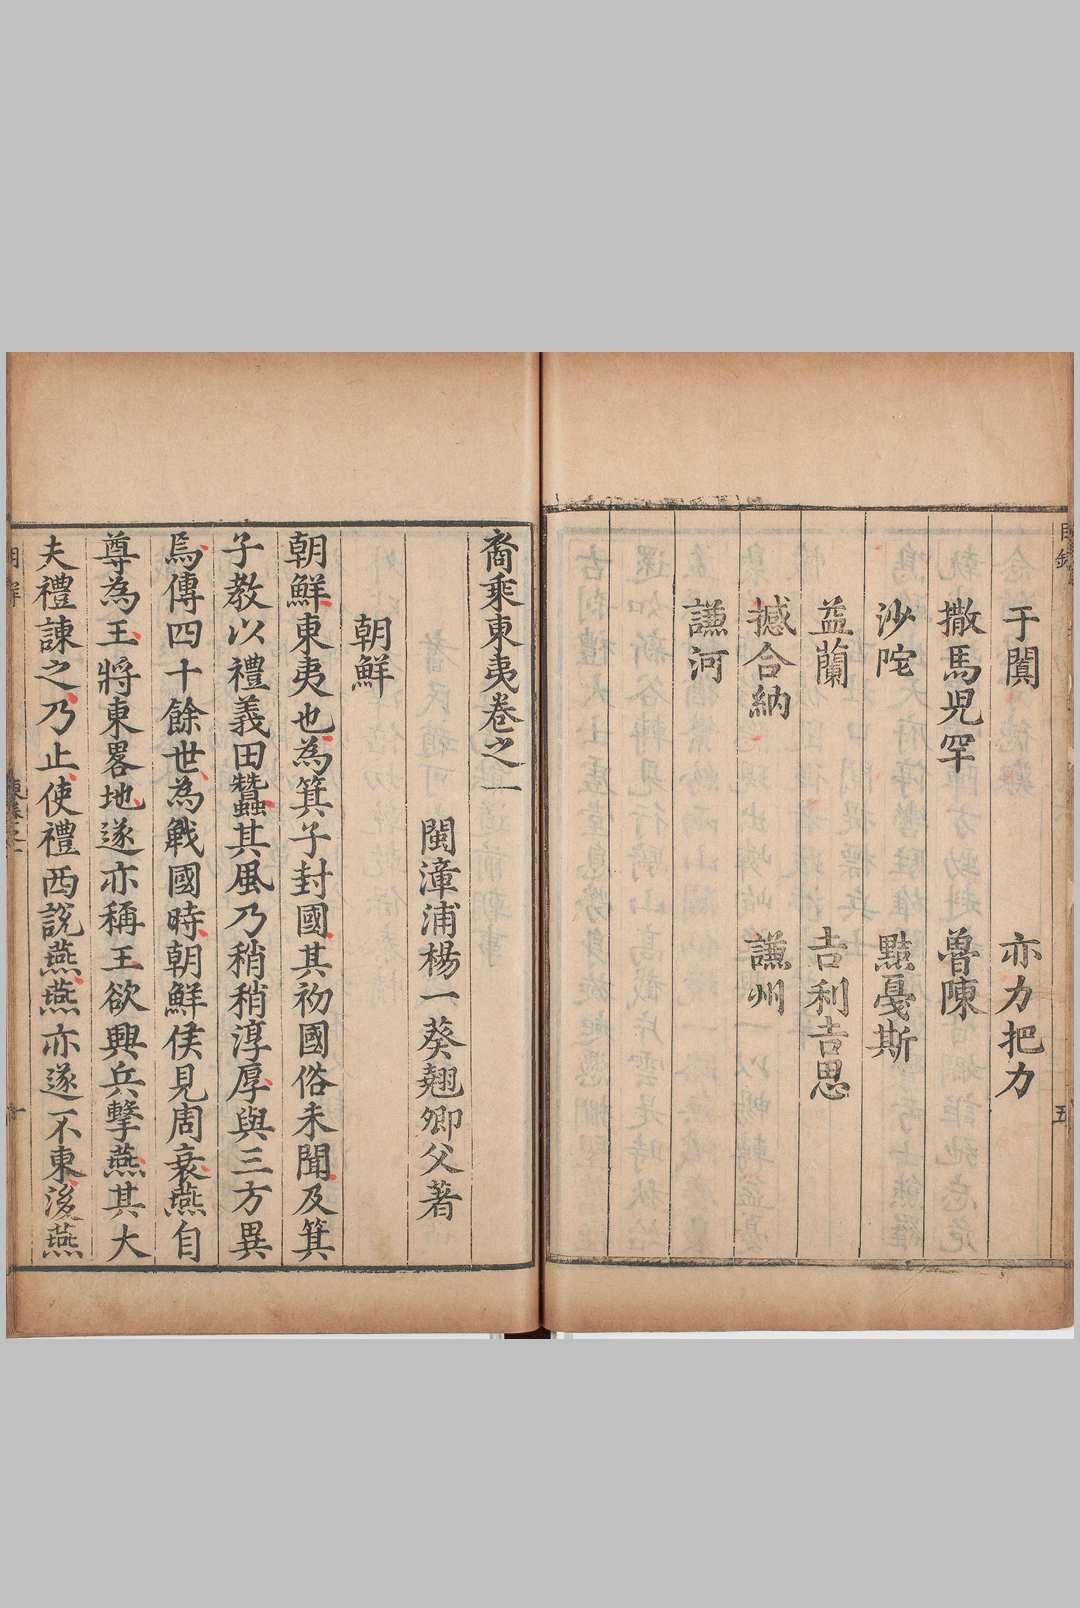 于闐 亦力把力
撒馬兒罕 魯陳
沙陀 黠戛斯
益蘭 吉利吉思
撼合納 謙州
謙河
裔乘東夷卷之一
閩漳浦楊一葵翹卿父著
朝鮮
朝鮮東夷也為箕子封國其初國俗未聞及箕
子教以禮義田蠶其風乃稍稍淳厚與三方異
焉傳四十餘世為戰國時朝鮮侯見周衰燕自
尊為王將東畧地遂亦稱王欲興兵擊燕其大
夫禮諫之乃止使禮西說燕燕亦遂不東後燕